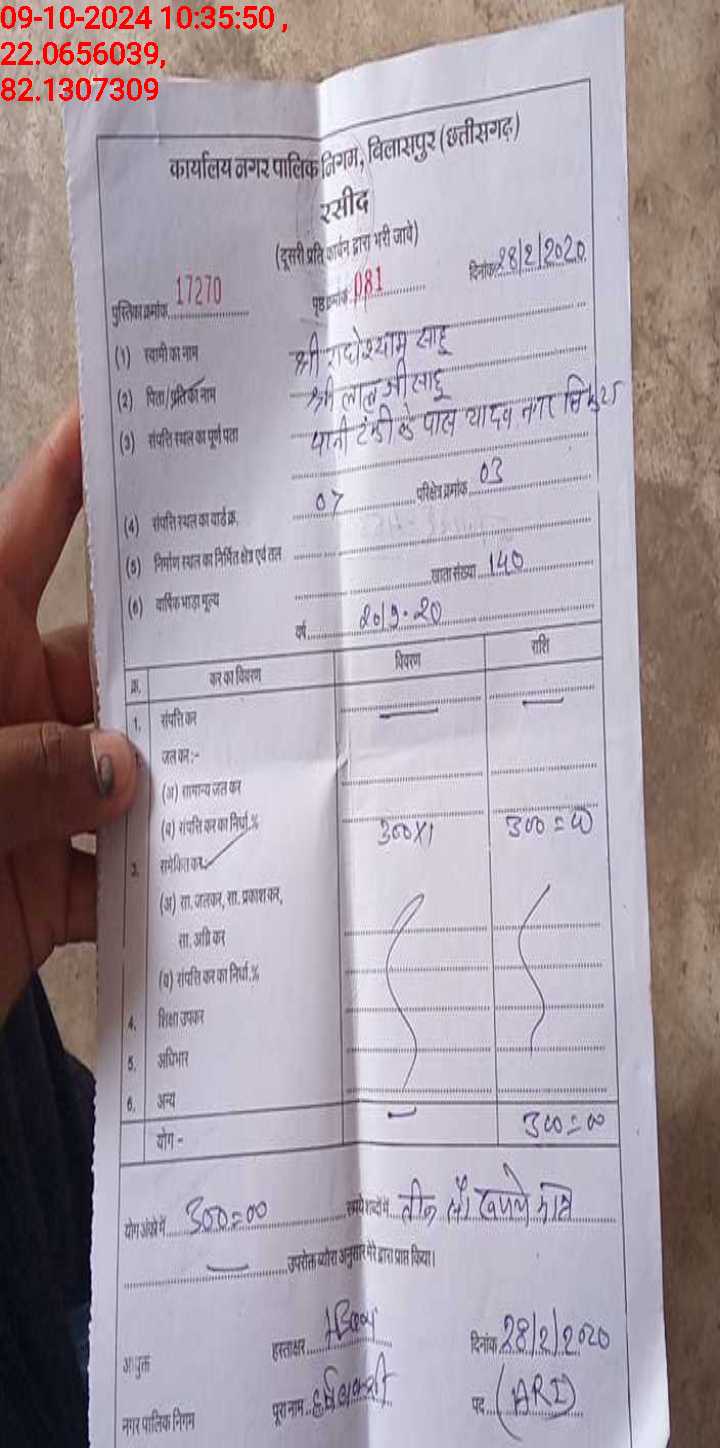 09-10-2024 10:35:50 ,
22.0656039,
82.1307309
कार्यालय नगर पालिक निगम, विलासपुर (छत्तीसगढ़)
रसीद
(दूसरी प्रति कार्बन द्वारा भरी जावे)
पुस्तिका क्रमांक 17270 पृष्ठ क्रमांक 081 दिनांक 28/2/2020
(१) स्वामी का नाम श्री राधेश्याम साहू
(२) पिता/प्रति का नाम श्री लाल जी साहू
(३) संपत्ति स्थल का पूर्ण पता पानी टंकी के पास यादव नगर
(4) संपत्ति स्थल का वार्ड क्र. 07 परिक्षेत्र क्रमांक 03
(5) निर्माण स्थल का निर्मित क्षेत्र एवं तल
(6) वार्षिक भाड़ा मूल्य खाता संख्या 140
वर्ष 2019-20
क्र. कर का विवरण विवरण राशि
1. संपत्ति कर — —
जल कर :-
(अ) सामान्य जल कर
(ब) संपत्ति कर का निर्धा.% 300X1 300=00
3. समेकित कर
(अ) सा. जलकर, सा. प्रकाश कर,
सा. अग्नि कर
(ब) संपत्ति कर का निर्धा.%
4. शिक्षा उपकर
5. अधिभार
6. अन्य
योग - — 300=00
योग अंको में 300=00 रूपये शब्दों में तीन सौ रूपये मात्र
— उपरोक्त ब्योरा अनुसार मेरे द्वारा प्राप्त किया।
आयुक्त हस्ताक्षर दिनांक 28/2/2020
नगर पालिक निगम पूरा नाम पद (ARI)